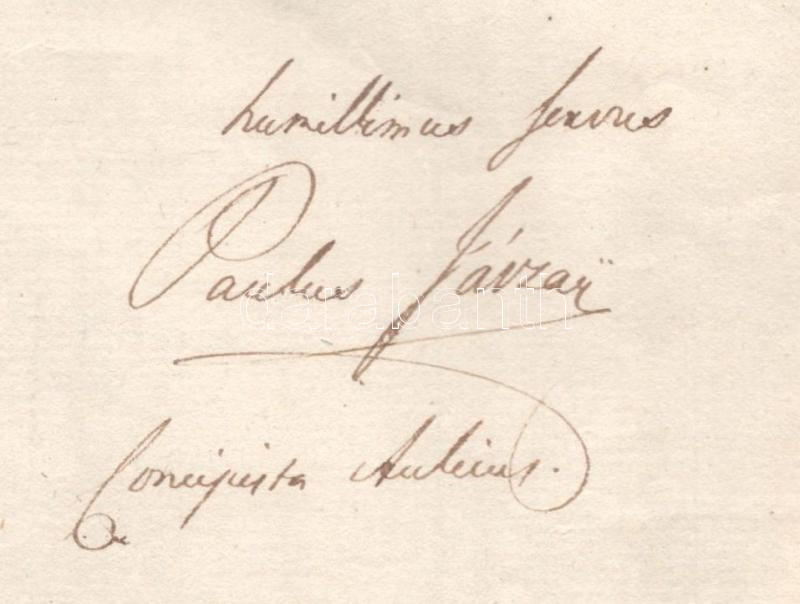 humillimus servus
Paulus Járzaÿ
Concipista Aulicus.
darabanth